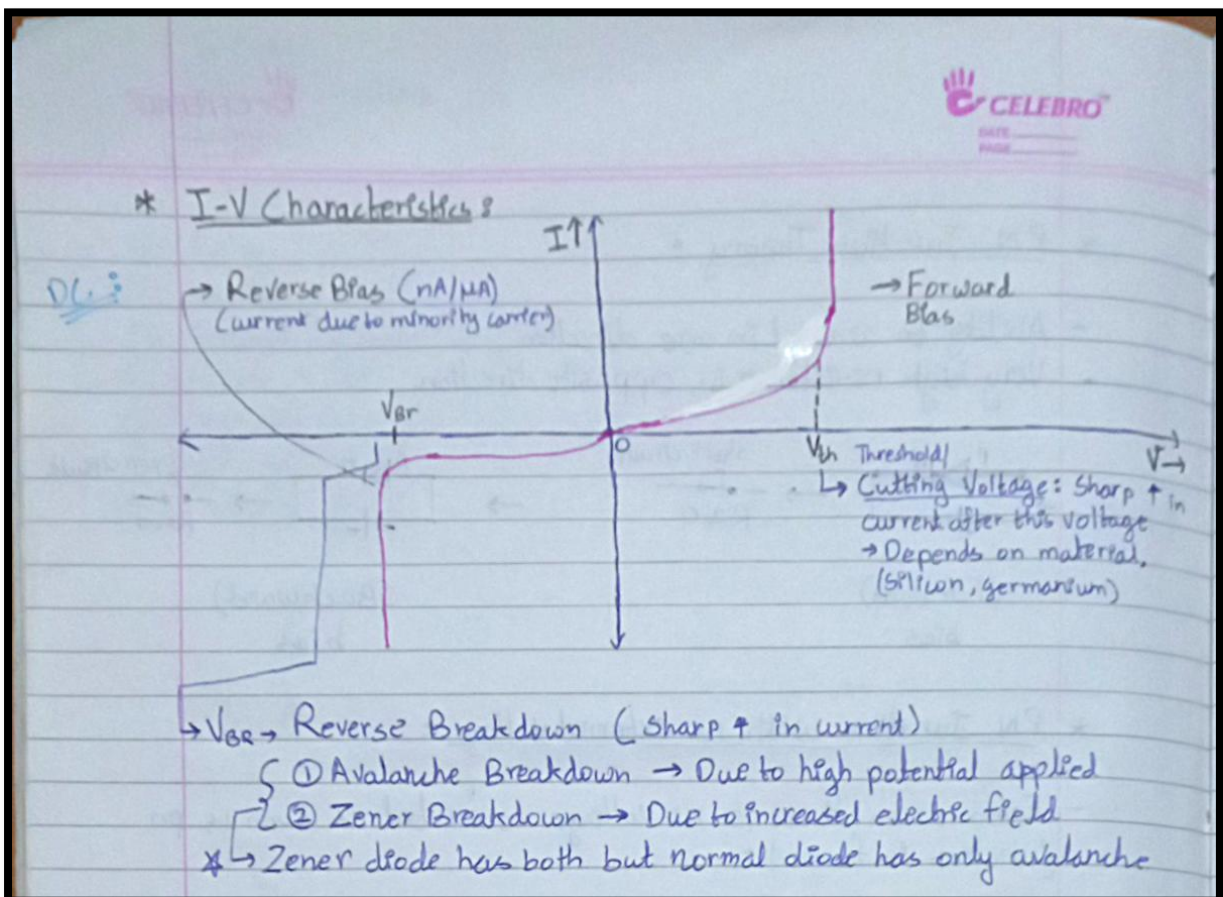 CELEBRO
DATE
PAGE
* I-V Characteristics :
I↑
DC :
→ Reverse Bias (nA/μA)
(current due to minority carrier)
→ Forward
Bias
VBr
O
Vth Threshold/
V→
↳ Cutting Voltage: Sharp ↑ in
current after this voltage
→ Depends on material.
(silicon, germanium)
↳ VBR → Reverse Breakdown (sharp ↑ in current)
① Avalanche Breakdown → Due to high potential applied
② Zener Breakdown → Due to increased electric field
* ↳ Zener diode has both but normal diode has only avalanche